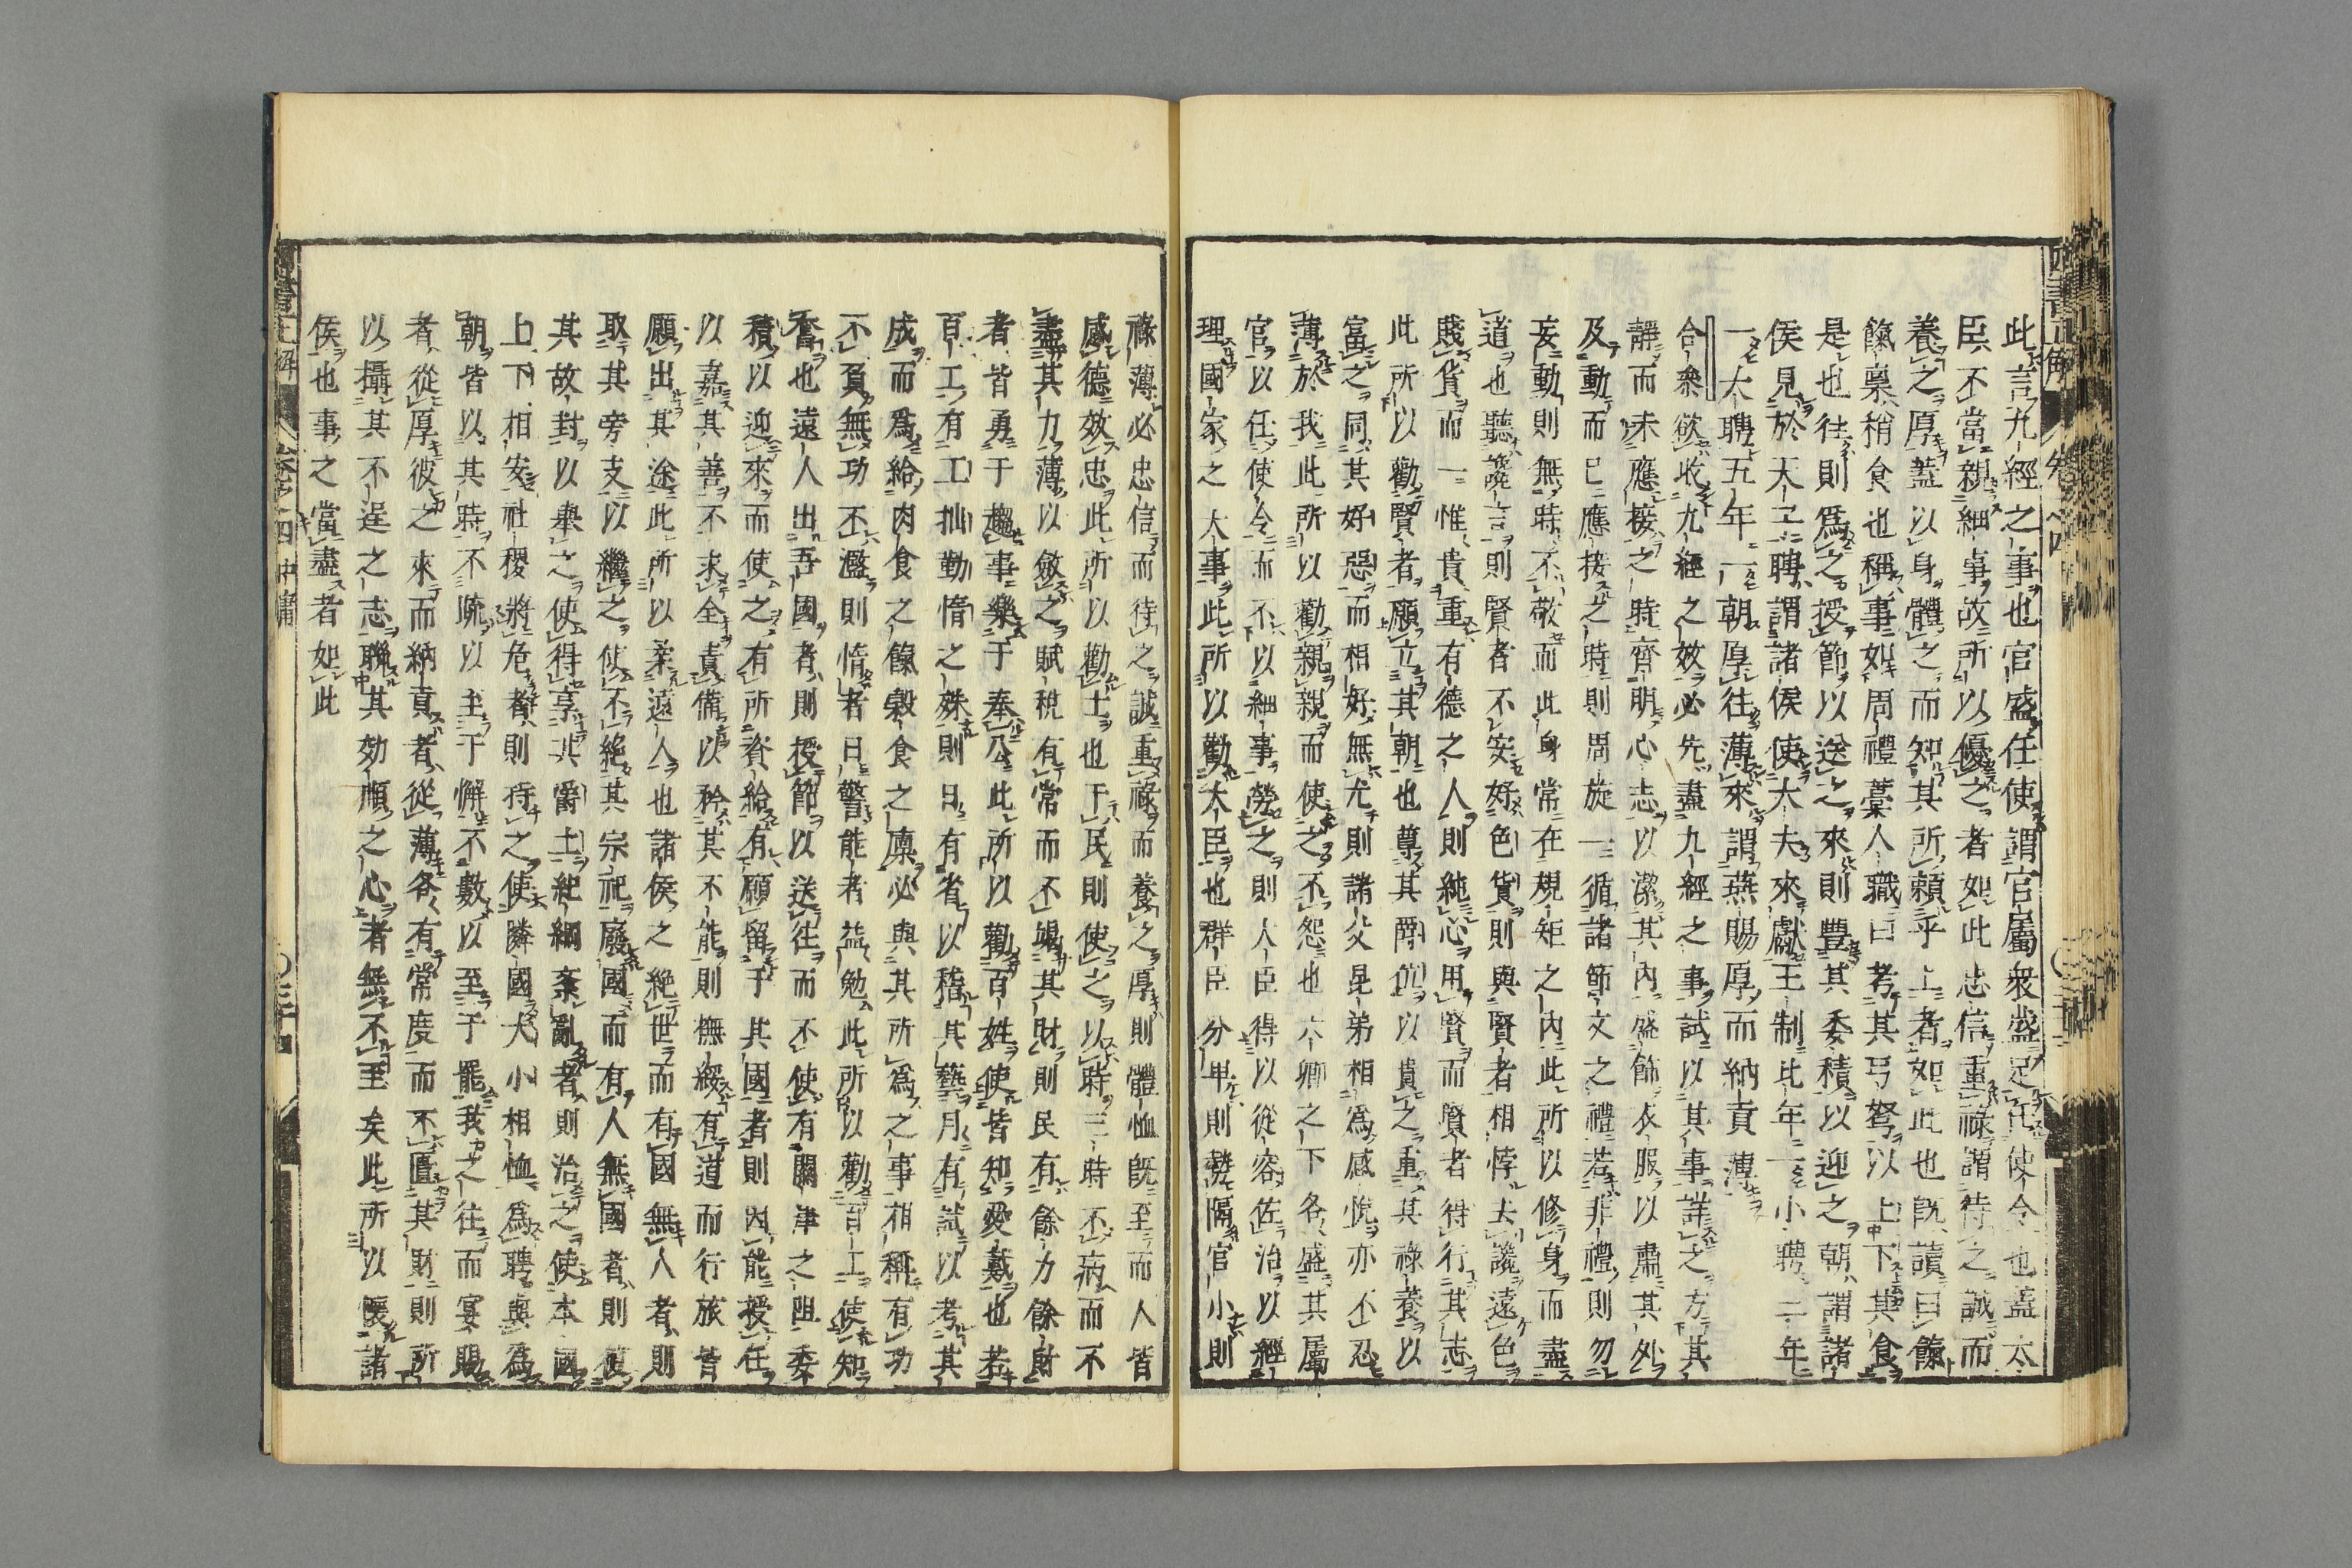 此言九經之事也官盛任使謂官屬衆盛足任使令也蓋大
臣不當親細事故所以優之者如此忠信重祿謂待之誠而
養之厚蓋以身體之而知其所賴乎上者如此也既讀曰餼
餼稟稍食也稱事如周禮藁人職曰考其弓弩以上下其食
是也往則爲之授節以送之來則豐其委積以迎之朝謂諸
侯見於天王聘謂諸侯使大夫來獻王制比年一小聘三年
一大聘五年一朝厚往薄來謂燕賜厚而納貢薄
合衆欲收九經之效必先盡九經之事試以其事詳之方其
靜而未應接之時齊明心志以潔其內盛飾衣服以肅其外
及動而已應接之時則周旋一循諸節文之禮若非禮則勿
妄動則無時不敬而此身常在規矩之內此所以修身而盡
道也聽讒言則賢者不安好色貨則與賢者相悖去讒遠色
賤貨而一惟貴重有德之人則純心用賢而賢者得行其志
此所以勸賢者願立其朝也尊其爵位以貴之重其祿養以
富之同其好惡而相好無尤則諸父昆弟相爲感悅亦不忍
薄於我此所以勸親親而使之不怨也六卿之下各盛其屬
官以任使令而不以細事勞之則大臣得以從容佐治以經
理國家之大事此所以勸大臣也群臣分卑則勢隔官小則
祿薄必忠信而待之誠重祿而養之厚則體恤既至而人皆
感德效忠此所以勸士也于民則使之以時三時不病而不
盡其力薄以斂之賦稅有常而不竭其財則民有餘力餘財
者皆勇于趨事樂于奉公此所以勸百姓使皆知愛戴也若
百工有工拙勤惰之殊則日有省以稽其藝月有試以考其
成而爲給肉食之餼穀食之廩必與其所爲之事相稱有功
不負無功不濫則惰者日警能者益勉此所以勸百工使知
奮也遠人出吾國者則授節以送往而不使有關津之阻委
積以迎來而使之有所資給有願留于其國者則因能授任
以嘉其善不求全責備以矜其不能則撫綏有道而行旅皆
願出其途此所以柔遠人也諸侯之絶世而有國無人者則
取其旁支以繼之使不絶其宗祀廢國而有人無國者則復
其故封以舉之使得享其爵土紀綱紊亂者則治之使本國
上下相安社稷將危者則持之使隣國大小相恤爲聘與爲
朝皆以其時不疏以至于懈不數以至于罷我之往而宴賜
者從厚彼之來而納貢者從薄各有常度而不匱其財則所
以攝其不逞之志聯其効順之心者無不至矣此所以懷諸
侯也事之當盡者如此
四書正解
卷之四 中庸